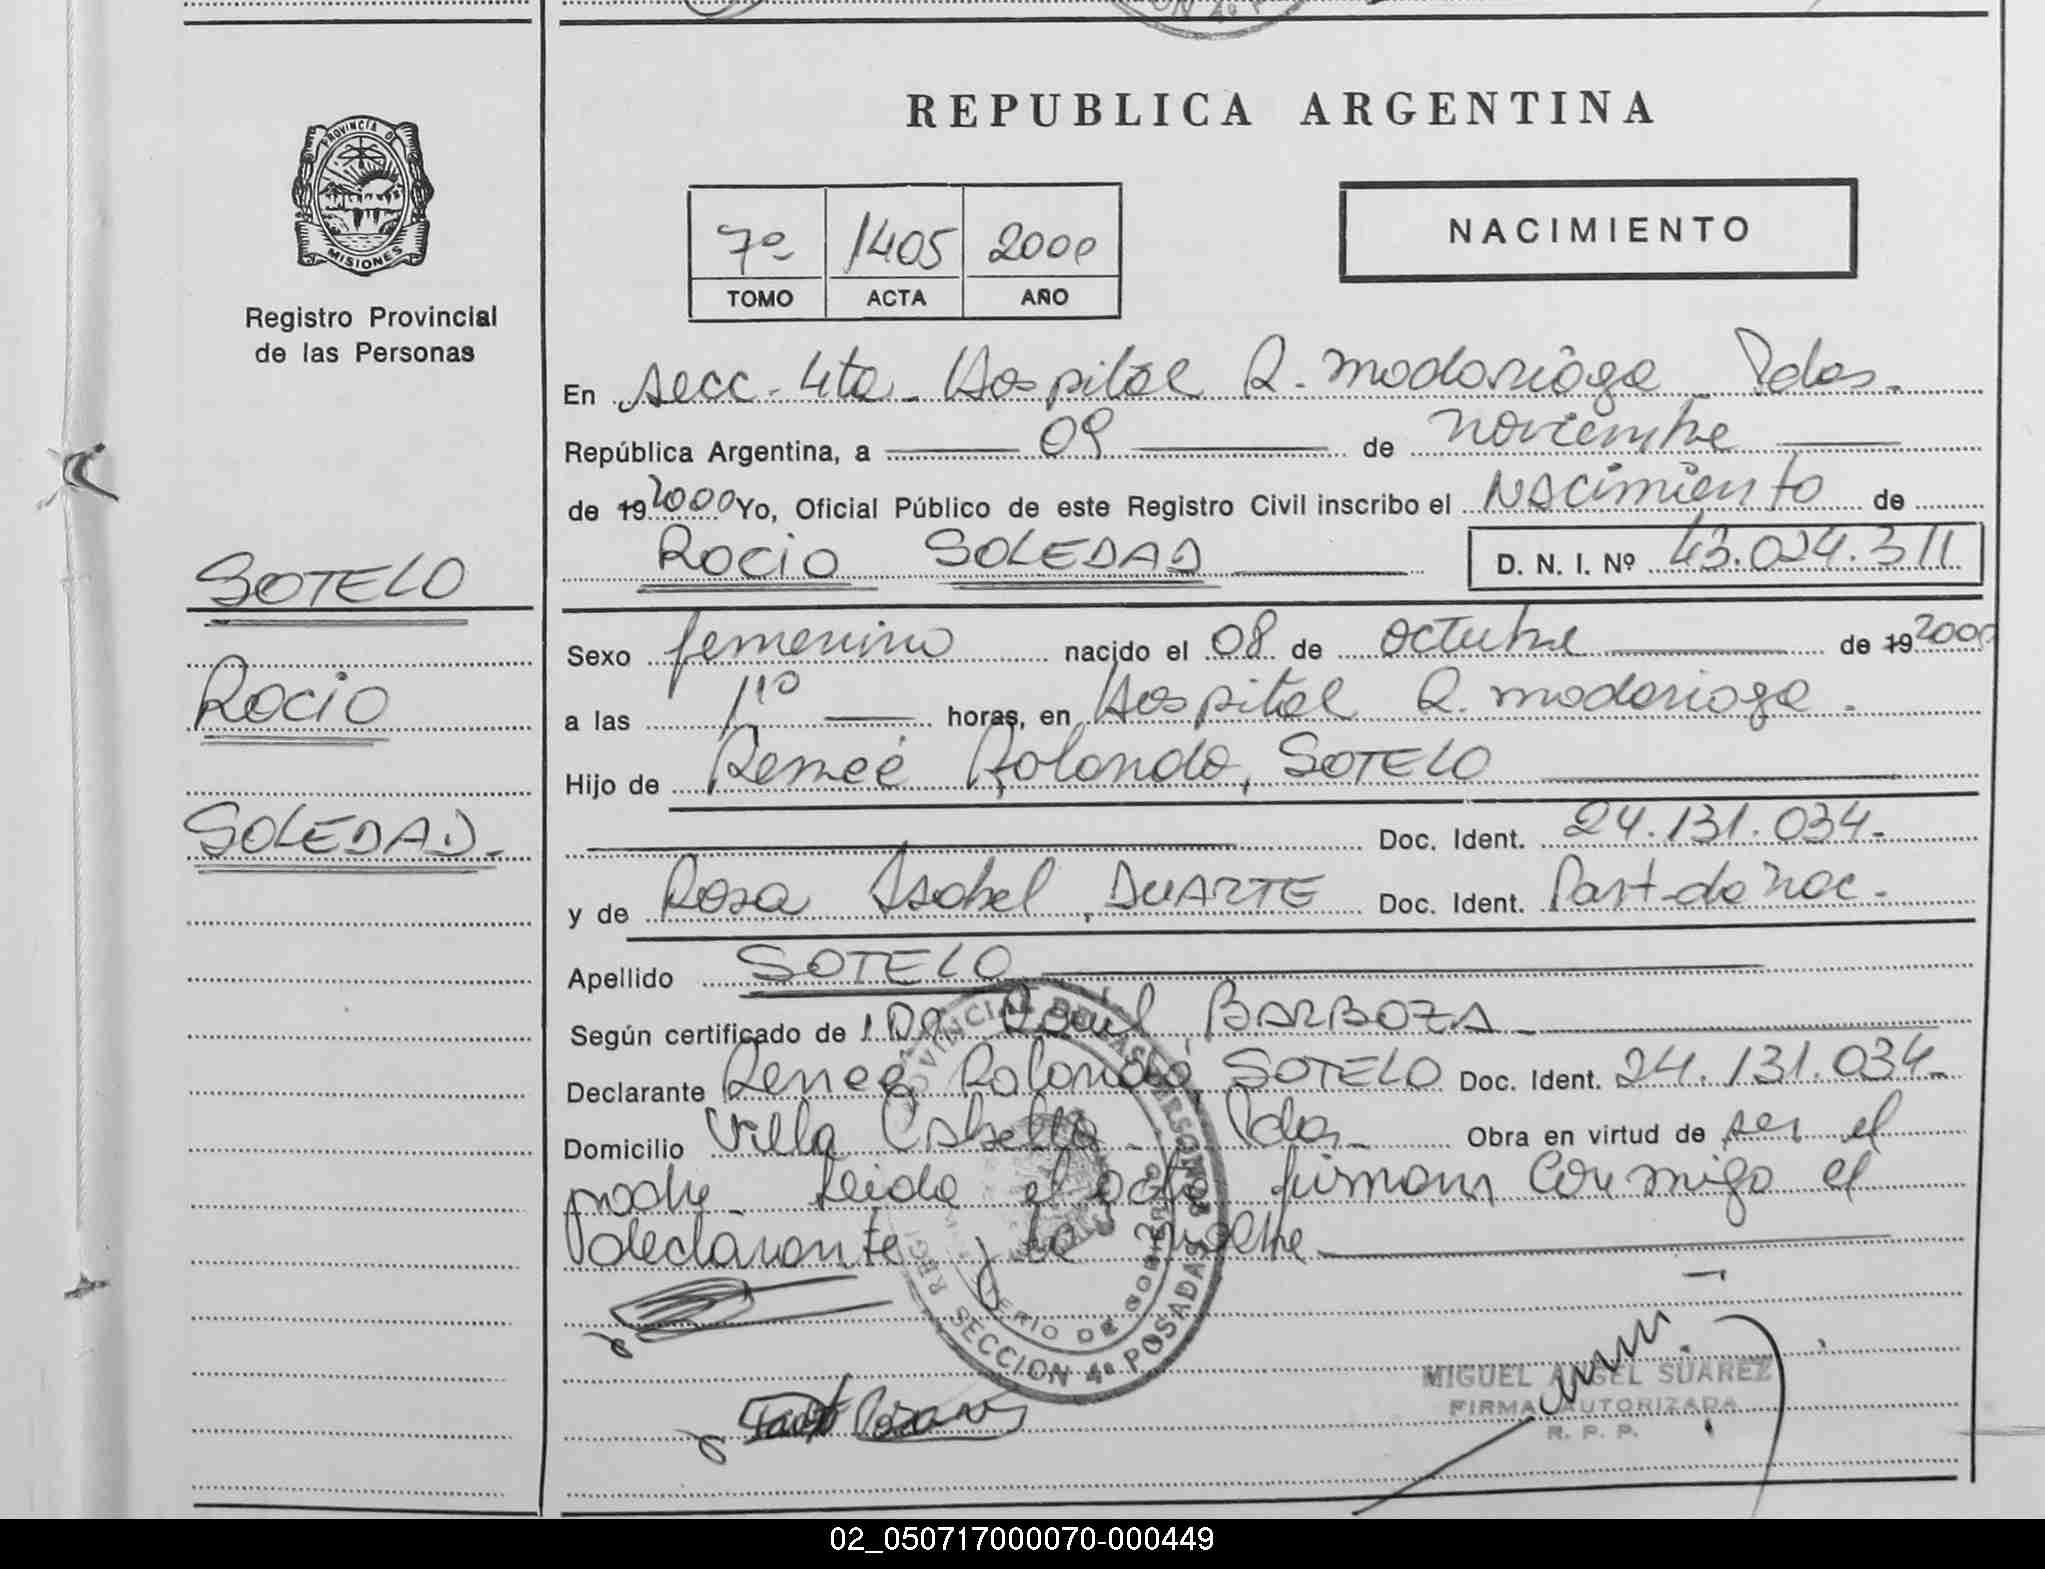 REPUBLICA ARGENTINA
PROVINCIA DE
MISIONES
Registro Provincial
de las Personas
7º 1405 2000
TOMO ACTA AÑO
NACIMIENTO
En secc. 4ta. Hospital R. madariaga Pdas.
República Argentina, a 09 de noviembre
de 19 2000 Yo, Oficial Público de este Registro Civil inscribo el Nacimiento de
ROCIO SOLEDAD D. N. I. Nº 43.024.311
SOTELO
ROCIO
SOLEDAD.
Sexo femenino nacido el 08 de octubre de 19 2000
a las 1:10 horas, en Hospital R. madariaga.
Hijo de Reneé Rolando, SOTELO
Doc. Ident. 24.131.034.
y de Rosa Isabel, DUARTE Doc. Ident. Part de nac.
Apellido SOTELO
Según certificado de Dr. Raul, BARBOZA
Declarante Reneé Rolando, SOTELO Doc. Ident. 24.131.034.
Domicilio Villa Cabello. Pdas. Obra en virtud de ser el
padre. Leida el acta firman conmigo el
declarante y la madre
SECCION 4ª POSADAS
MIGUEL ANGEL SUAREZ
FIRMA AUTORIZADA
R. P. P.
02_050717000070-000449